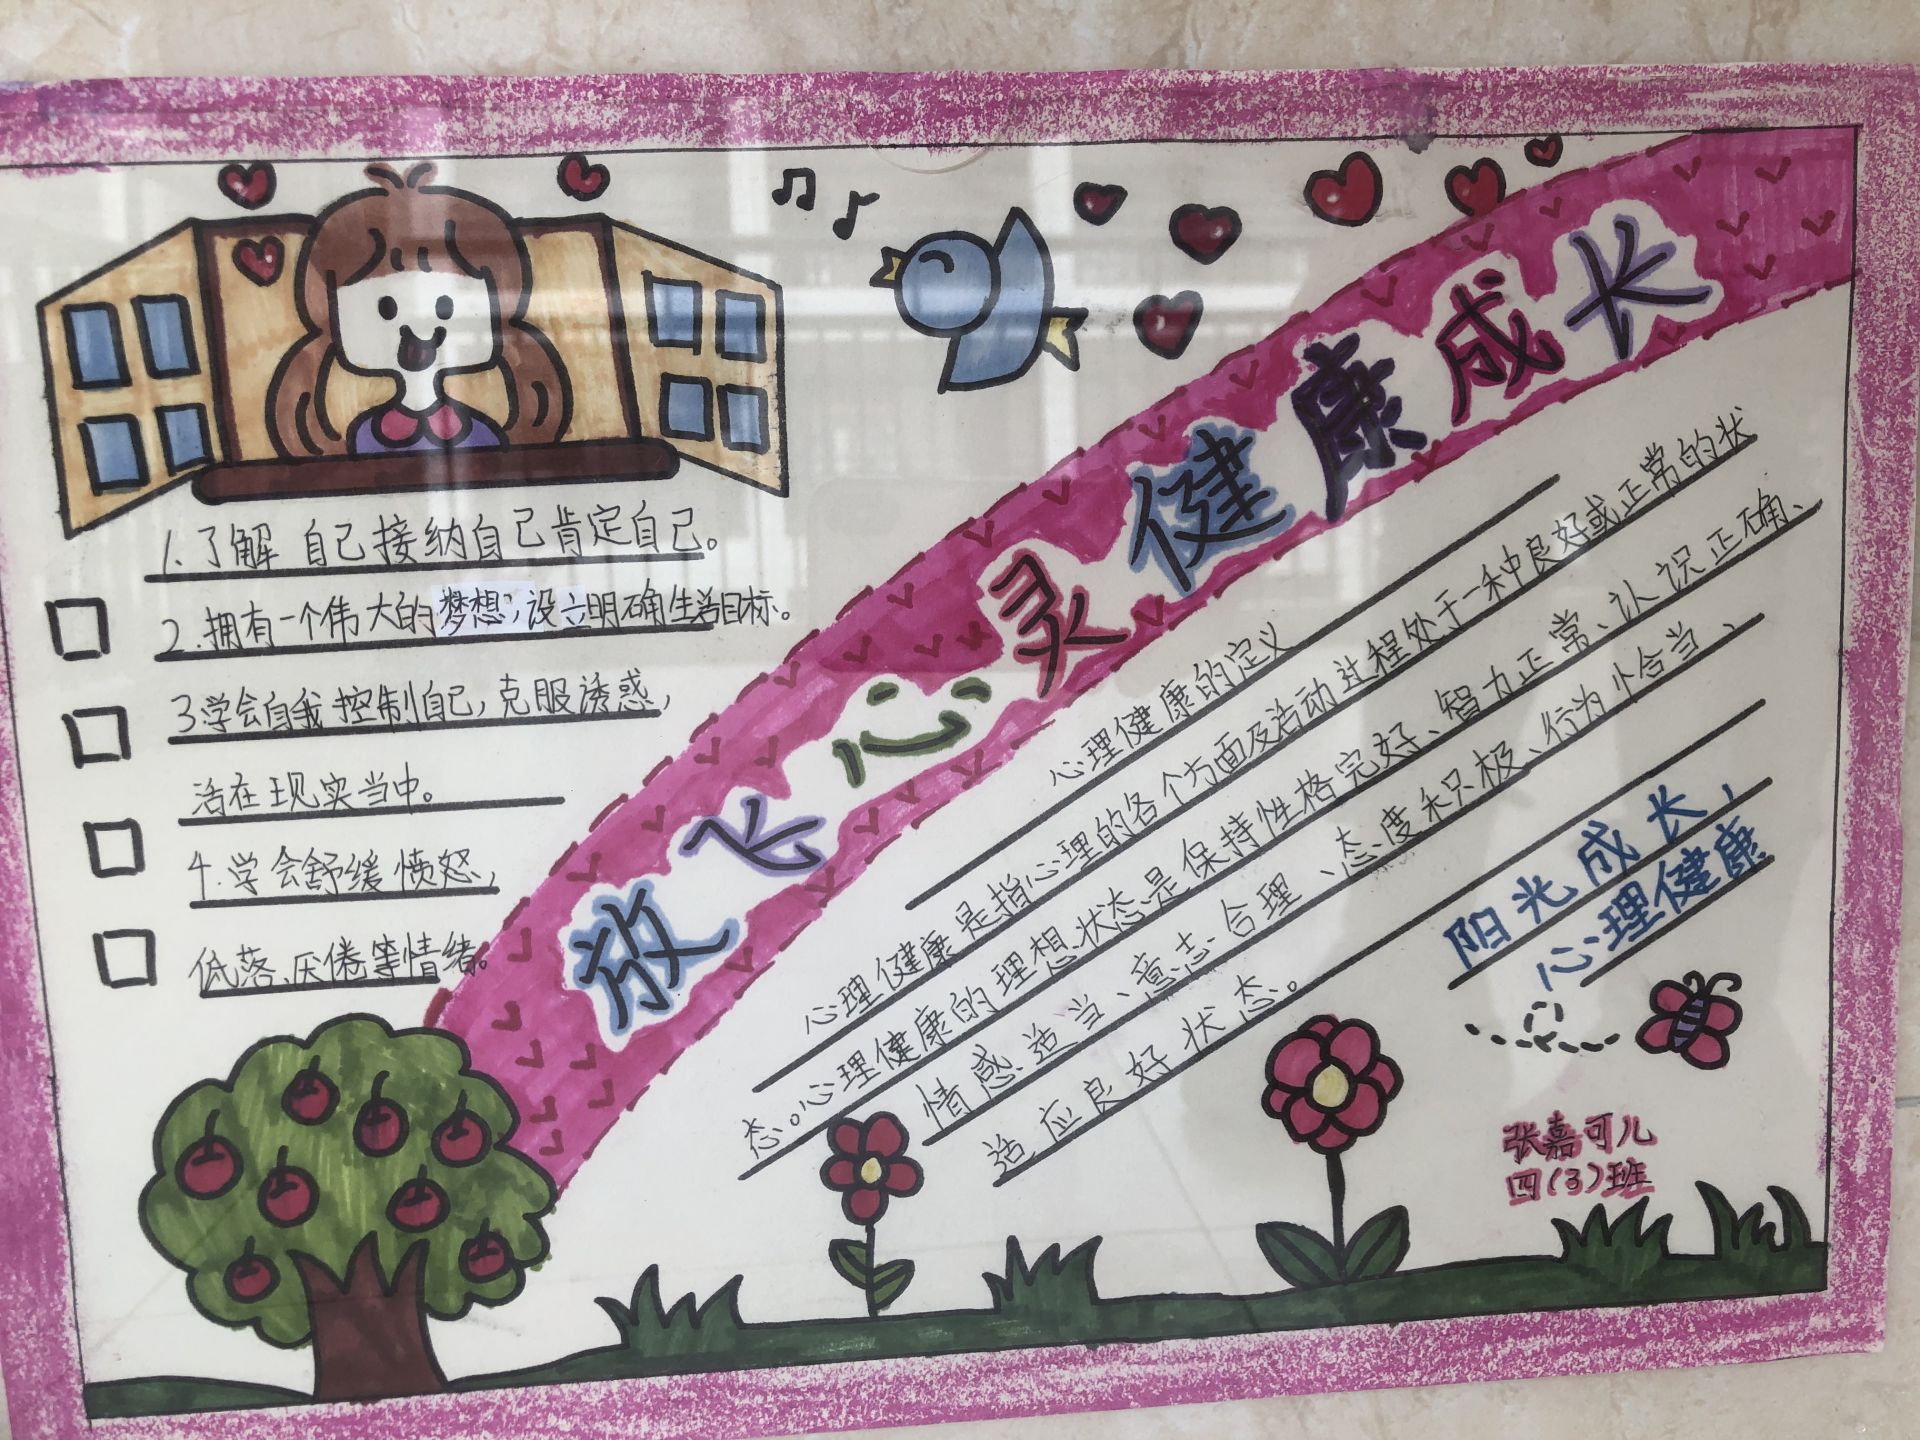 放飞心灵健康成长
1.了解自己接纳自己肯定自己。
2.拥有一个伟大的梦想，设立明确生活目标。
3.学会自我控制自己，克服诱惑，
活在现实当中。
4.学会舒缓愤怒，
低落、厌倦等情绪。
心理健康的定义
心理健康是指心理的各个方面及活动过程处于一种良好或正常的状
态。心理健康的理想状态是保持性格完好、智力正常、认识正确、
情感适当、意志合理、态度积极、行为恰当、
适应良好状态。
阳光成长，
心理健康
张嘉可儿
四（3）班